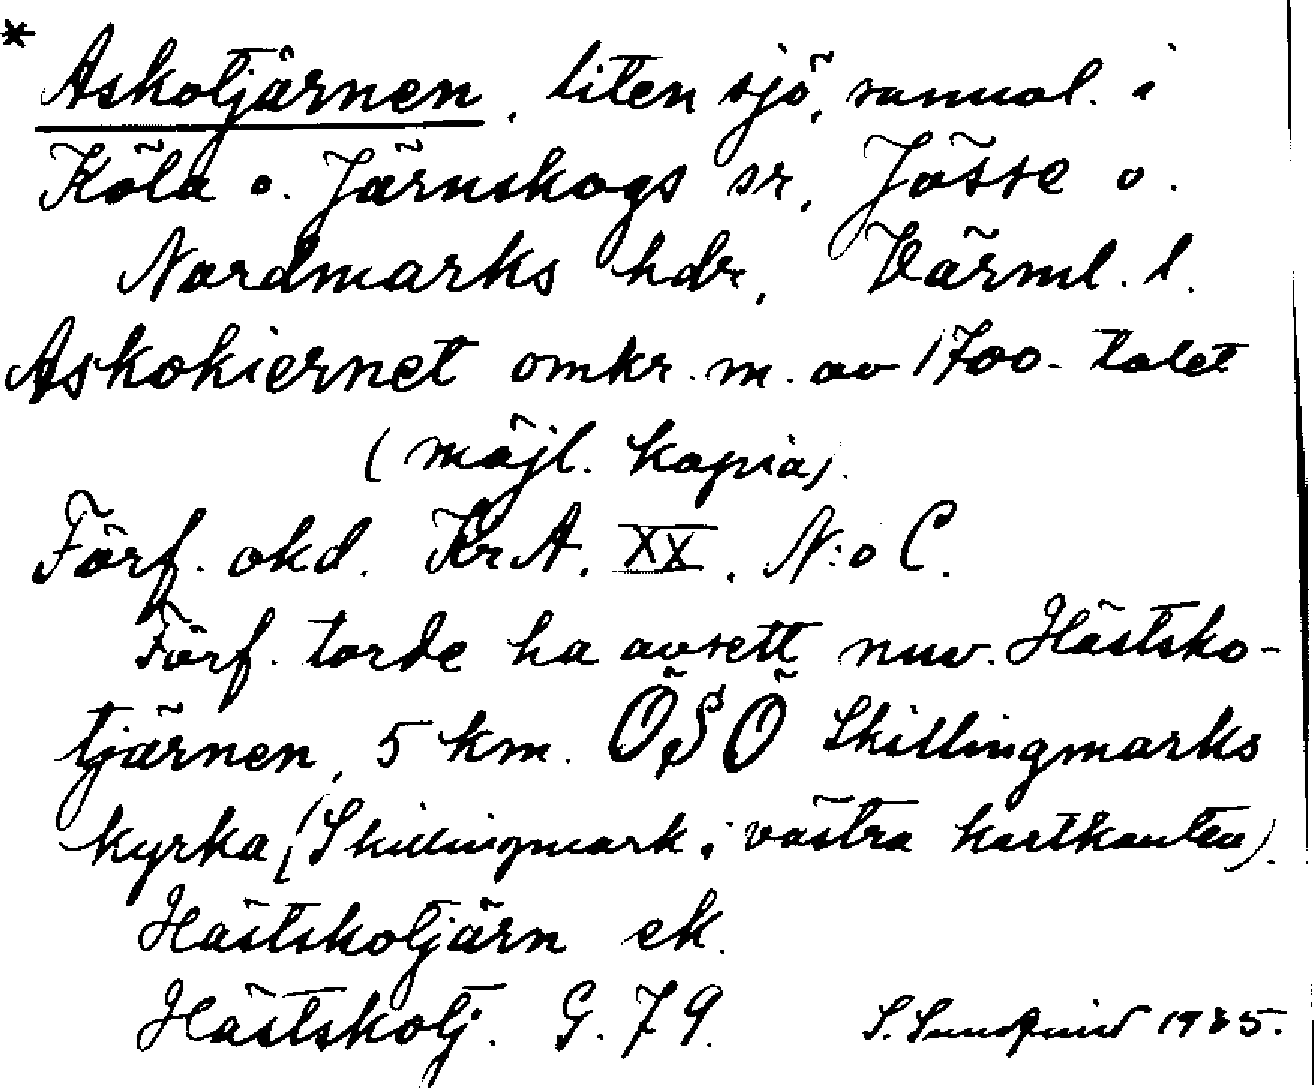 * Askotjärnen, liten sjö, samml. i
Köla o. Järnskogs sr, Jösse o.
Nordmarks hdr, Värml. l.
Askokiernet omkr. m. av 1700-talet
(möjl. kopia).
Förf. okd. KrA. XX. N:o C.
Förf. torde ha avsett nuv. Hästsko-
tjärnen, 5 km. ÖSÖ Skillingmarks
kyrka, (Skillingmark i västra kartkanten).
Hästskotjärn ek.
Hästskotj. G. 79. S. 1985.